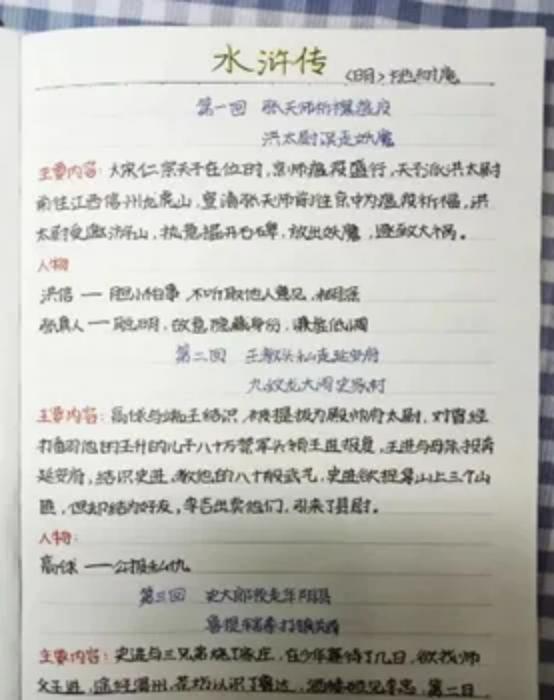 水浒传
<明>施耐庵
第一回 张天师祈禳瘟疫
洪太尉误走妖魔
主要内容:大宋仁宗天子在位时,京师瘟疫盛行,天子派洪太尉
前往江西信州龙虎山,宣请张天师前往京中为瘟疫祈福,洪
太尉受邀游山,执意掘开石碑,放出妖魔,遂致大祸。
人物
洪信——胆小怕事,不听取他人意见,
张真人——聪明,故意隐藏身份,谦虚低调
第二回 王教头私走延安府
九纹龙大闹史家村
主要内容:高俅与端王结识,被提拔为殿帅府太尉,对曾经
打翻他的王升的儿子八十万禁军头领王进报复,王进与母亲投奔
延安府,结识史进,教他的八十般武艺,史进欲捉拿山上三个山
匪,但却结为好友,李吉出卖他们,引来了县尉。
人物:
高俅——公报私仇
第三回 史大郎夜走华阴县
鲁提辖拳打镇关西
主要内容:史进与三兄弟烧了家庄,在少华寨待了几日,欲找师
父王进,途经渭州,茶坊认识了鲁达,酒楼姐兄李忠,第一日